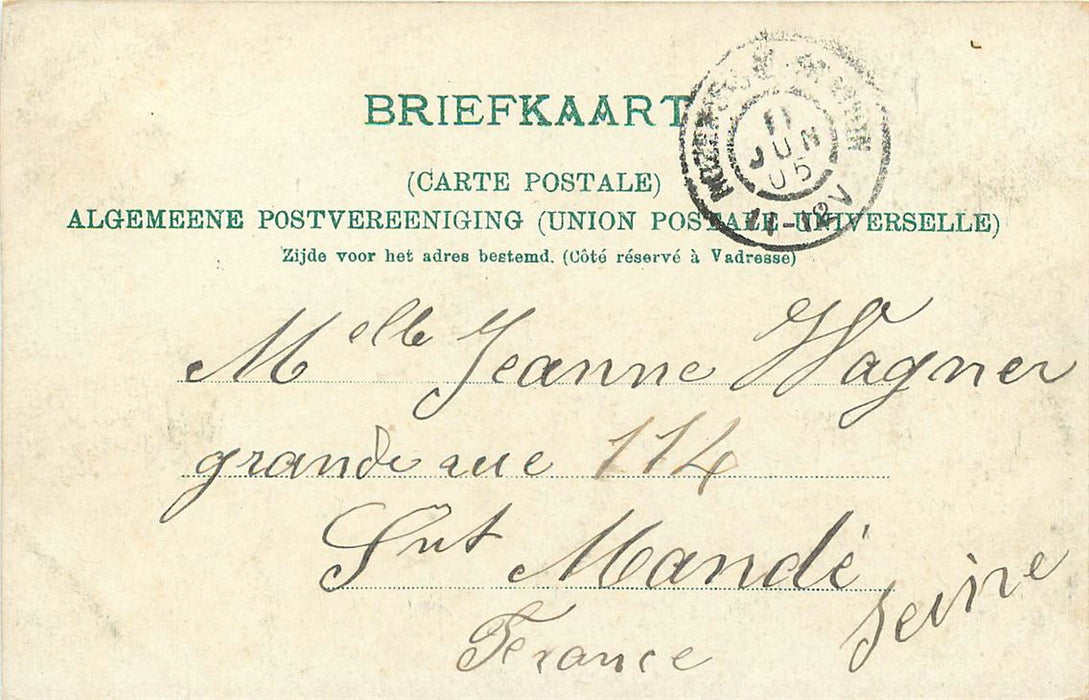 BRIEFKAART
(CARTE POSTALE)
ALGEMEENE POSTVEREENIGING (UNION POSTALE UNIVERSELLE)
Zijde voor het adres bestemd. (Côté réservé à Vadresse)
JUN
05
11-12V
Melle Jeanne Wagner
grande rue 114
Snt Mandé
Seine
France